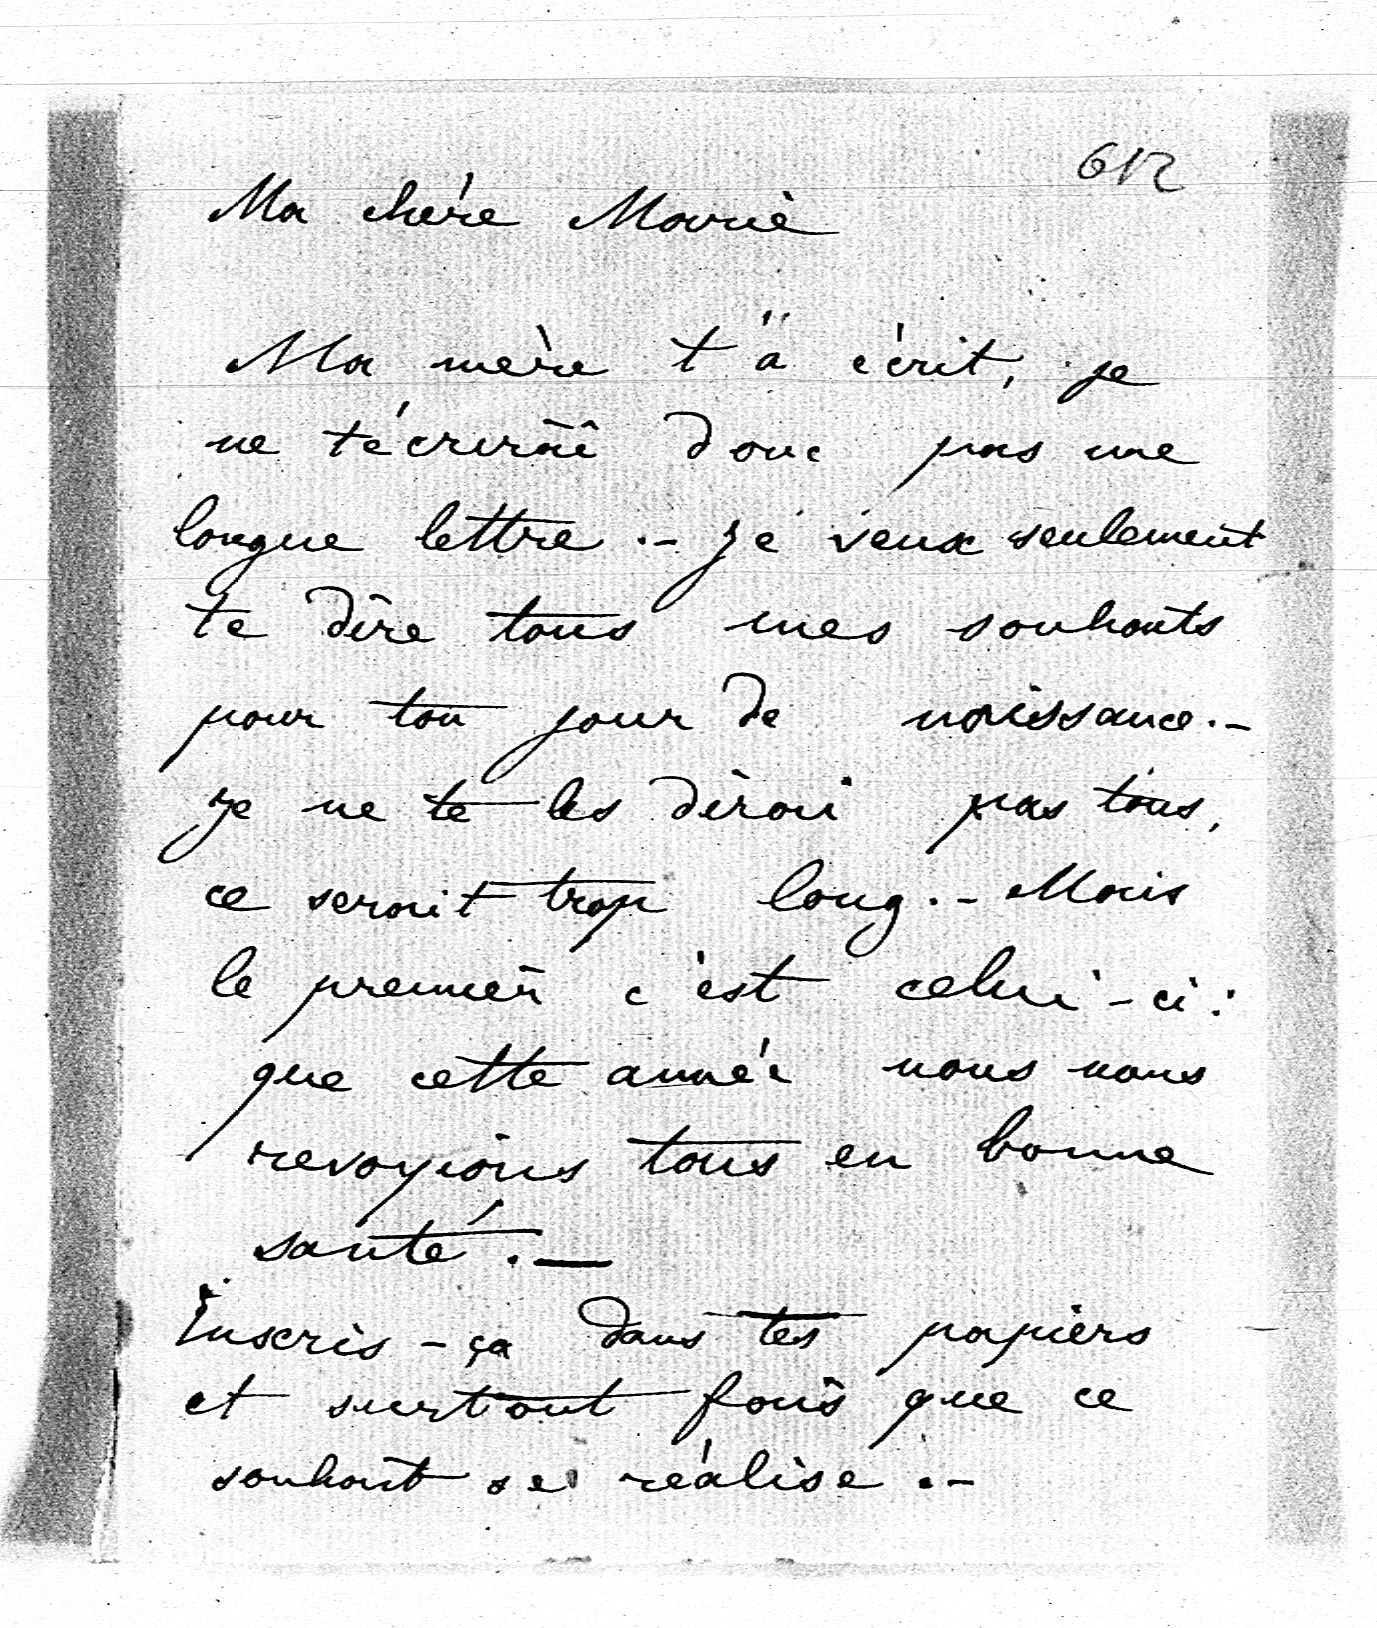 612
Ma chère Marie
Ma mère t'a écrit, je
ne t'écrirai donc pas une
longue lettre .– Je veux seulement
te dire tous mes souhaits
pour ton jour de naissance .–
Je ne te les dirai pas tous,
ce serait trop long .– Mais
le premier c'est celui-ci :
que cette année nous nous
revoyions tous en bonne
santé .—
Inscris-ça dans tes papiers
et surtout fais que ce
souhait se réalise .–